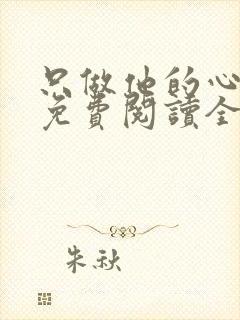 只做他的心
免費閱讀全
朱秋